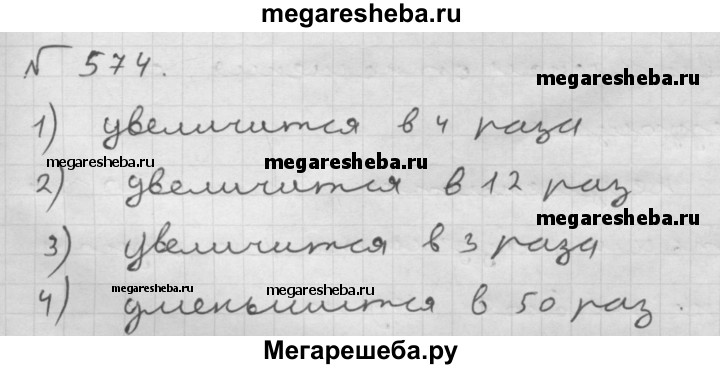 megaresheba.ru
№ 574.
megaresheba.ru
1) увеличится в 4 раза
megaresheba.ru
megaresheba.ru
2) увеличится в 12 раз
megaresheba.ru
3) увеличится в 3 раза
megaresheba.ru
megaresheba.ru
4) уменьшится в 50 раз.
Мегарешеба.ру